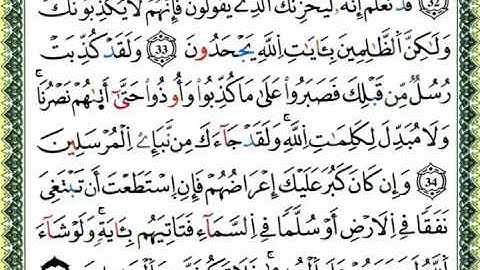 32 قَدْ نَعْلَمُ إِنَّهُۥ لَيُحْزِنُكَ اَ۬لذِے يَقُولُونَ فَإِنَّهُمْ لَا يُكْذِبُونَكَ
وَلَٰكِنَّ اَ۬لظَّٰلِمِينَ بِـَٔايَٰتِ اِ۬للَّهِ يَجْحَدُونَ 33 وَلَقَدْ كُذِّبَتْ
رُسُلٞ مِّن قَبْلِكَ فَصَبَرُواْ عَلَىٰ مَا كُذِّبُواْ وَأُوذُواْ حَتَّىٰٓ أَتَىٰهُمْ نَصْرُنَا
وَلَا مُبَدِّلَ لِكَلِمَٰتِ اِ۬للَّهِ وَلَقَدْ جَآءَكَ مِن نَّبَإِےْ اِ۬لْمُرْسَلِينَ
34 وَإِن كَانَ كَبُرَ عَلَيْكَ إِعْرَاضُهُمْ فَإِنِ اِ۪سْتَطَعْتَ أَن تَبْتَغِىَ
نَفَقاٗ فِے اِ۬لَارْضِ أَوْ سُلَّماٗ فِے اِ۬لسَّمَآءِ فَتَاتِيَهُم بِـَٔايَةٖ وَلَوْ شَآءَ